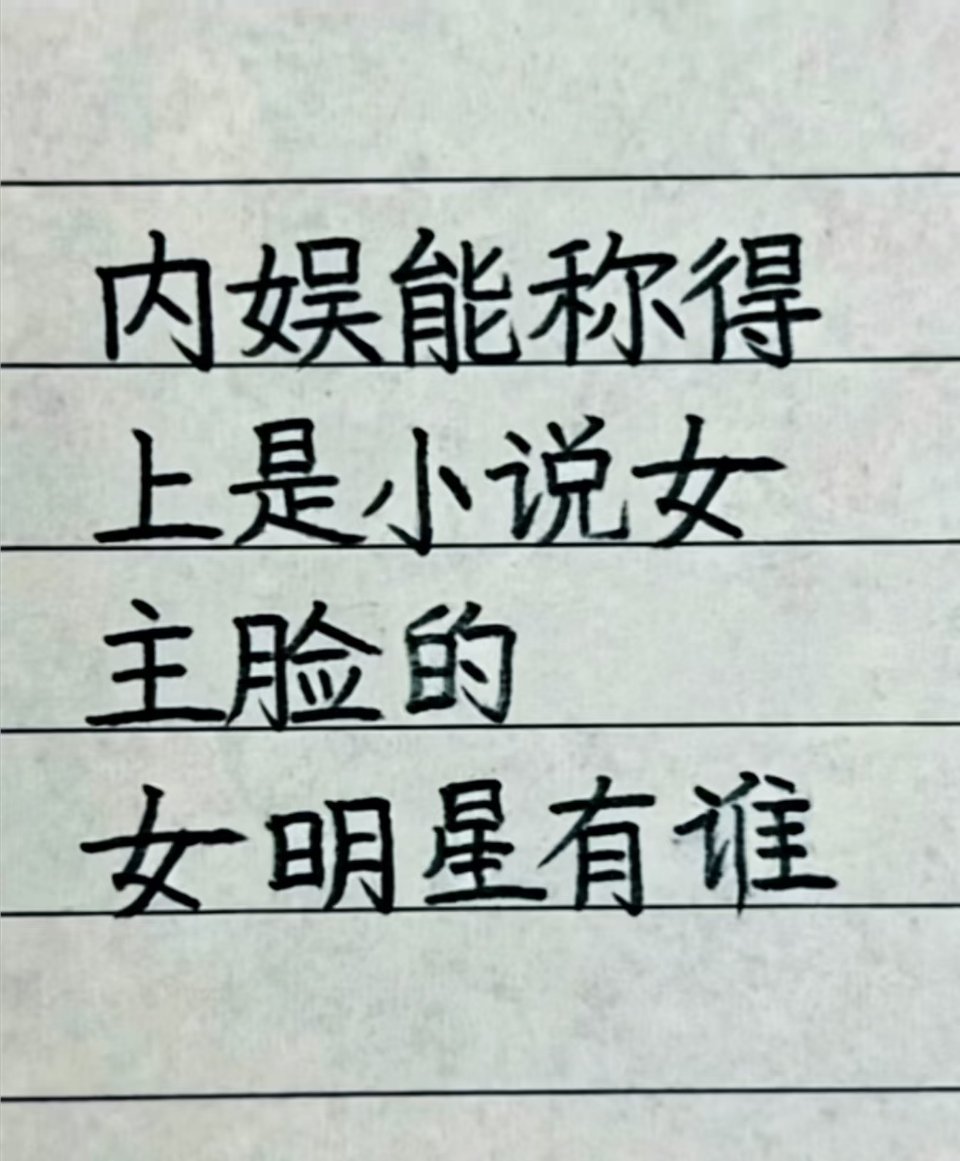 内娱能称得
上是小说女
主脸的
女明星有谁